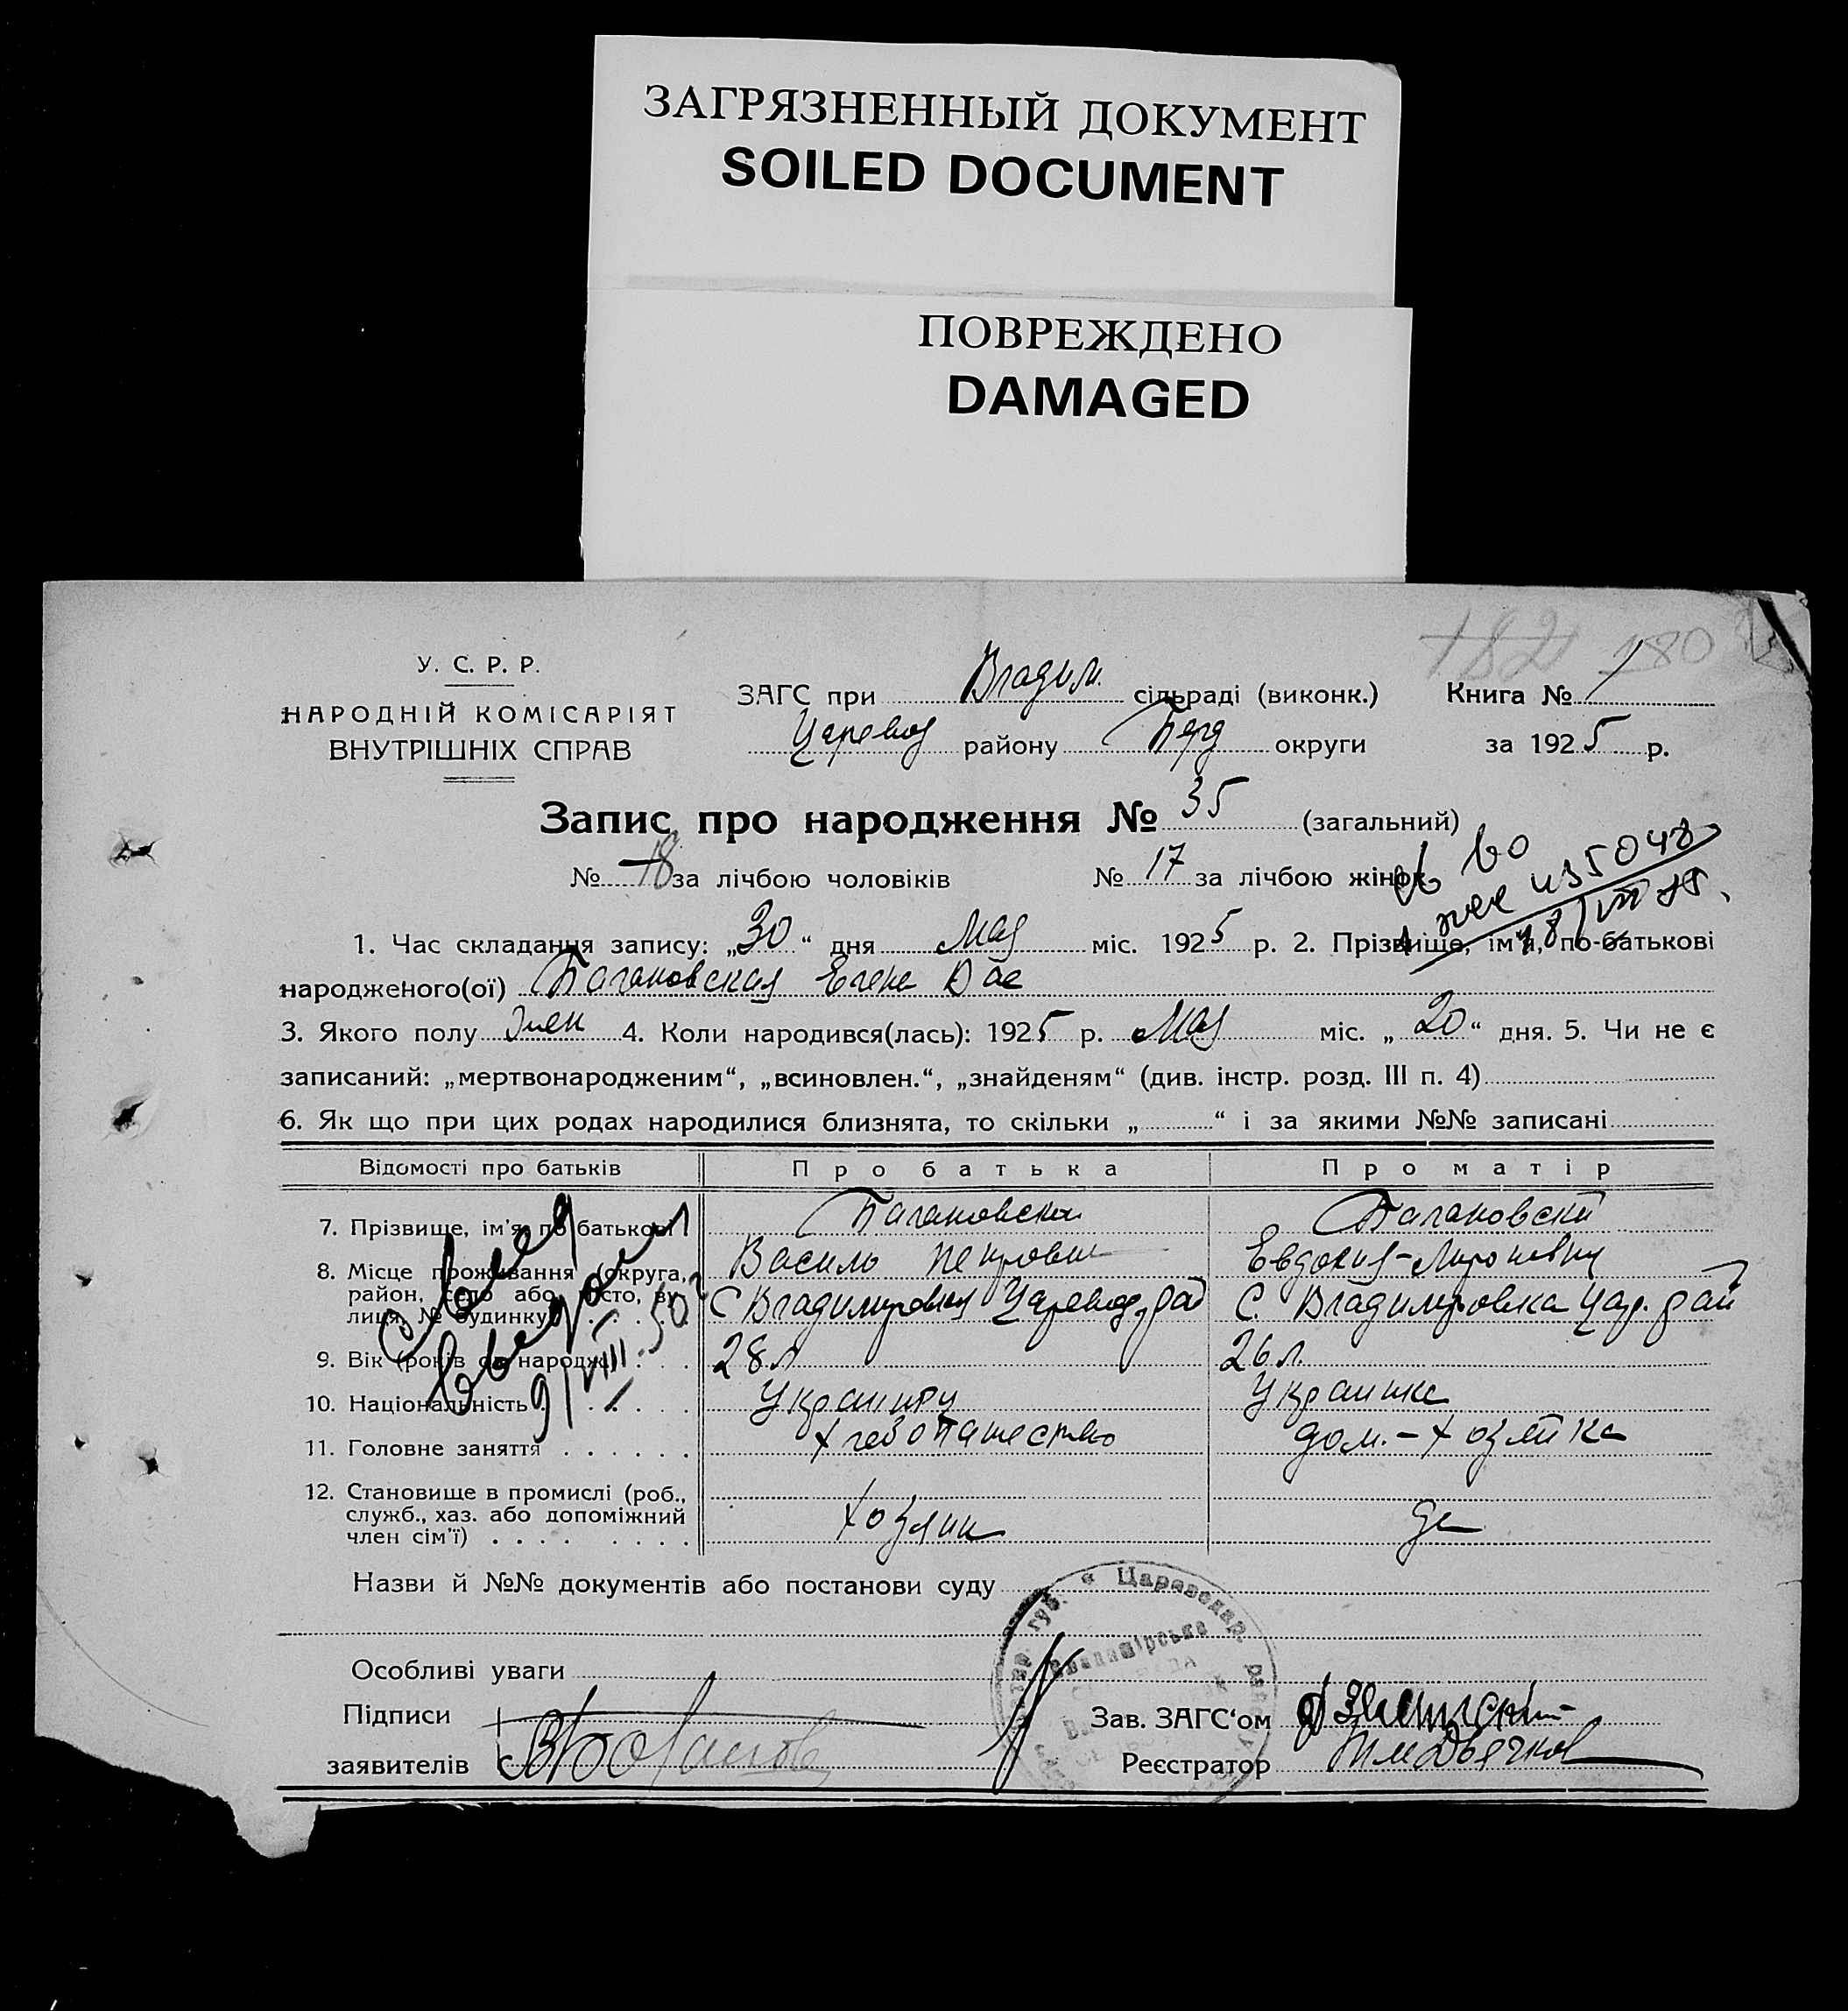 ЗАГРЯЗНЕННЫЙ ДОКУМЕНТ
SOILED DOCUMENT
ПОВРЕЖДЕНО
DAMAGED
182 180
У. С. Р. Р.
НАРОДНІЙ КОМІСАРІЯТ
ВНУТРІШНІХ СПРАВ
ЗАГС при Владим. сільраді (виконк.) Книга № 1
Царевод району Берд округи за 1925 р.
Запис про народження № 35 (загальний)
№ 18 за лічбою чоловіків № 17 за лічбою жінок
1. Час складання запису: „30“ дня Мая міс. 1925 р. 2. Прізвище, ім'я, по-батькові
народженого(ої) Багановская Елена Вас
3. Якого полу Жен 4. Коли народився(лась): 1925 р. Мая міс. „20“ дня. 5. Чи не є
записаний: „мертвонародженим“, „всиновлен.“, „знайденям“ (див. інстр. розд. III п. 4)
6. Як що при цих родах народилися близнята, то скільки „ “ і за якими №№ записані
Відомості про батьків Про батька Про матір
7. Прізвище, ім'я, по батькові Багановский Багановски
Василь Петрович Евдокия-Мироновна
8. Місце проживання (округа, район, село або місто, вулиця, № будинку) С Владимировка Царевод. рай С. Владимировка Цар. рай
9. Вік (років од народж.) 28 л 26 л.
10. Національність Украинец Украинка
11. Головне заняття Хлебопашество дом.-хозяйка
12. Становище в промислі (роб.,
служб., хаз. або допоміжний
член сім'ї) хозяин
9/VIII-50
Назви й №№ документів або постанови суду
Особливі уваги
Підписи
заявителів
Зав. ЗАГС'ом
Реєстратор